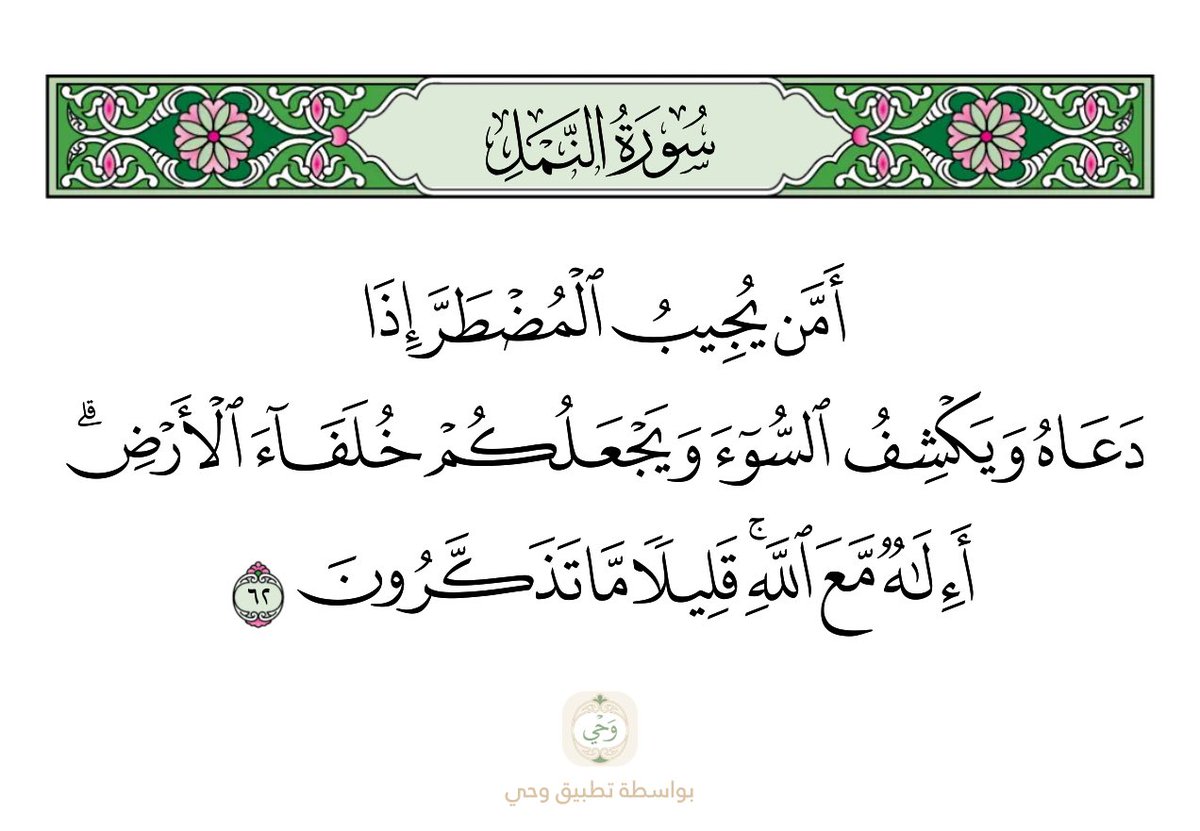 سُورَةُ النَّمۡلِ
أَمَّن يُجِيبُ ٱلۡمُضۡطَرَّ إِذَا
دَعَاهُ وَيَكۡشِفُ ٱلسُّوٓءَ وَيَجۡعَلُكُمۡ خُلَفَآءَ ٱلۡأَرۡضِۗ
أَءِلَٰهٞ مَّعَ ٱللَّهِۚ قَلِيلٗا مَّا تَذَكَّرُونَ ٦٢
وَحْي
بواسطة تطبيق وحي